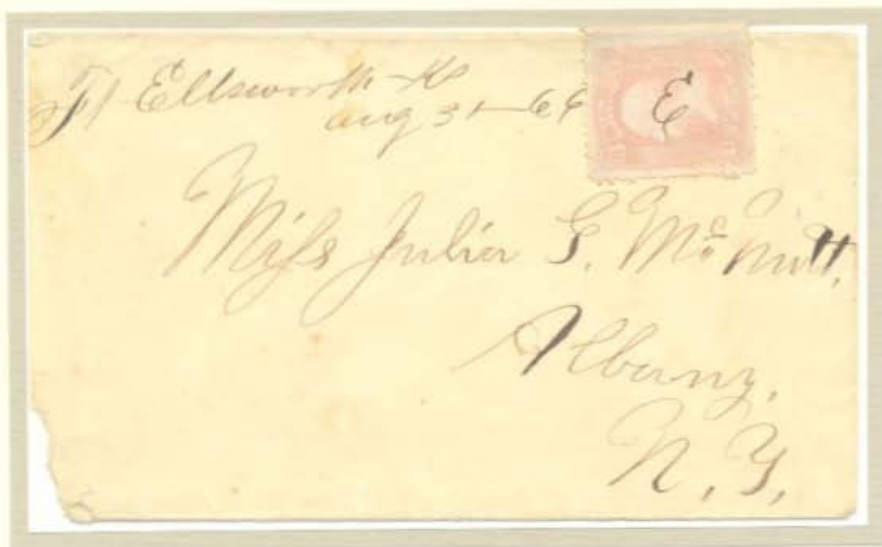 Ft Ellsworth Ks
aug 31—66
E
Miss Julia G. Mc Nutt,
Albany,
N. Y.